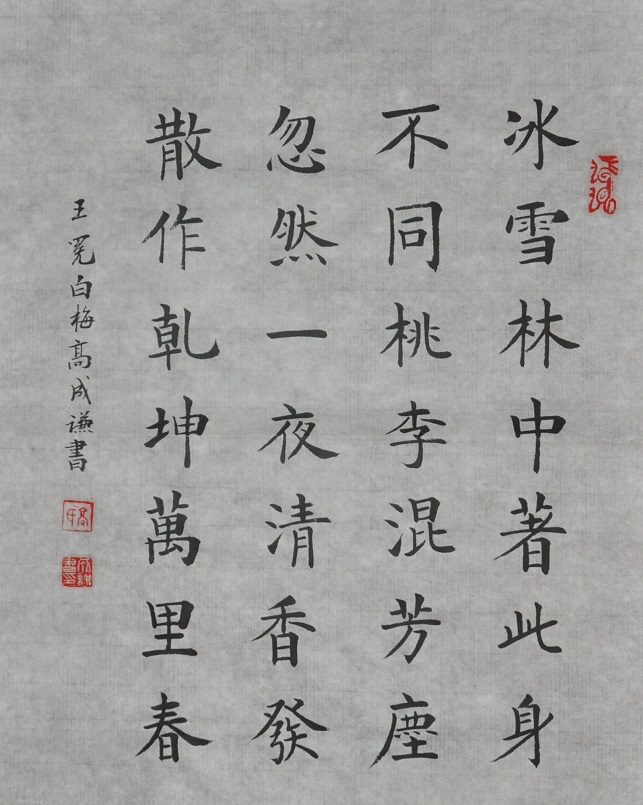 冰雪林中著此身
不同桃李混芳塵
忽然一夜清香發
散作乾坤萬里春
王冕白梅高成谦書